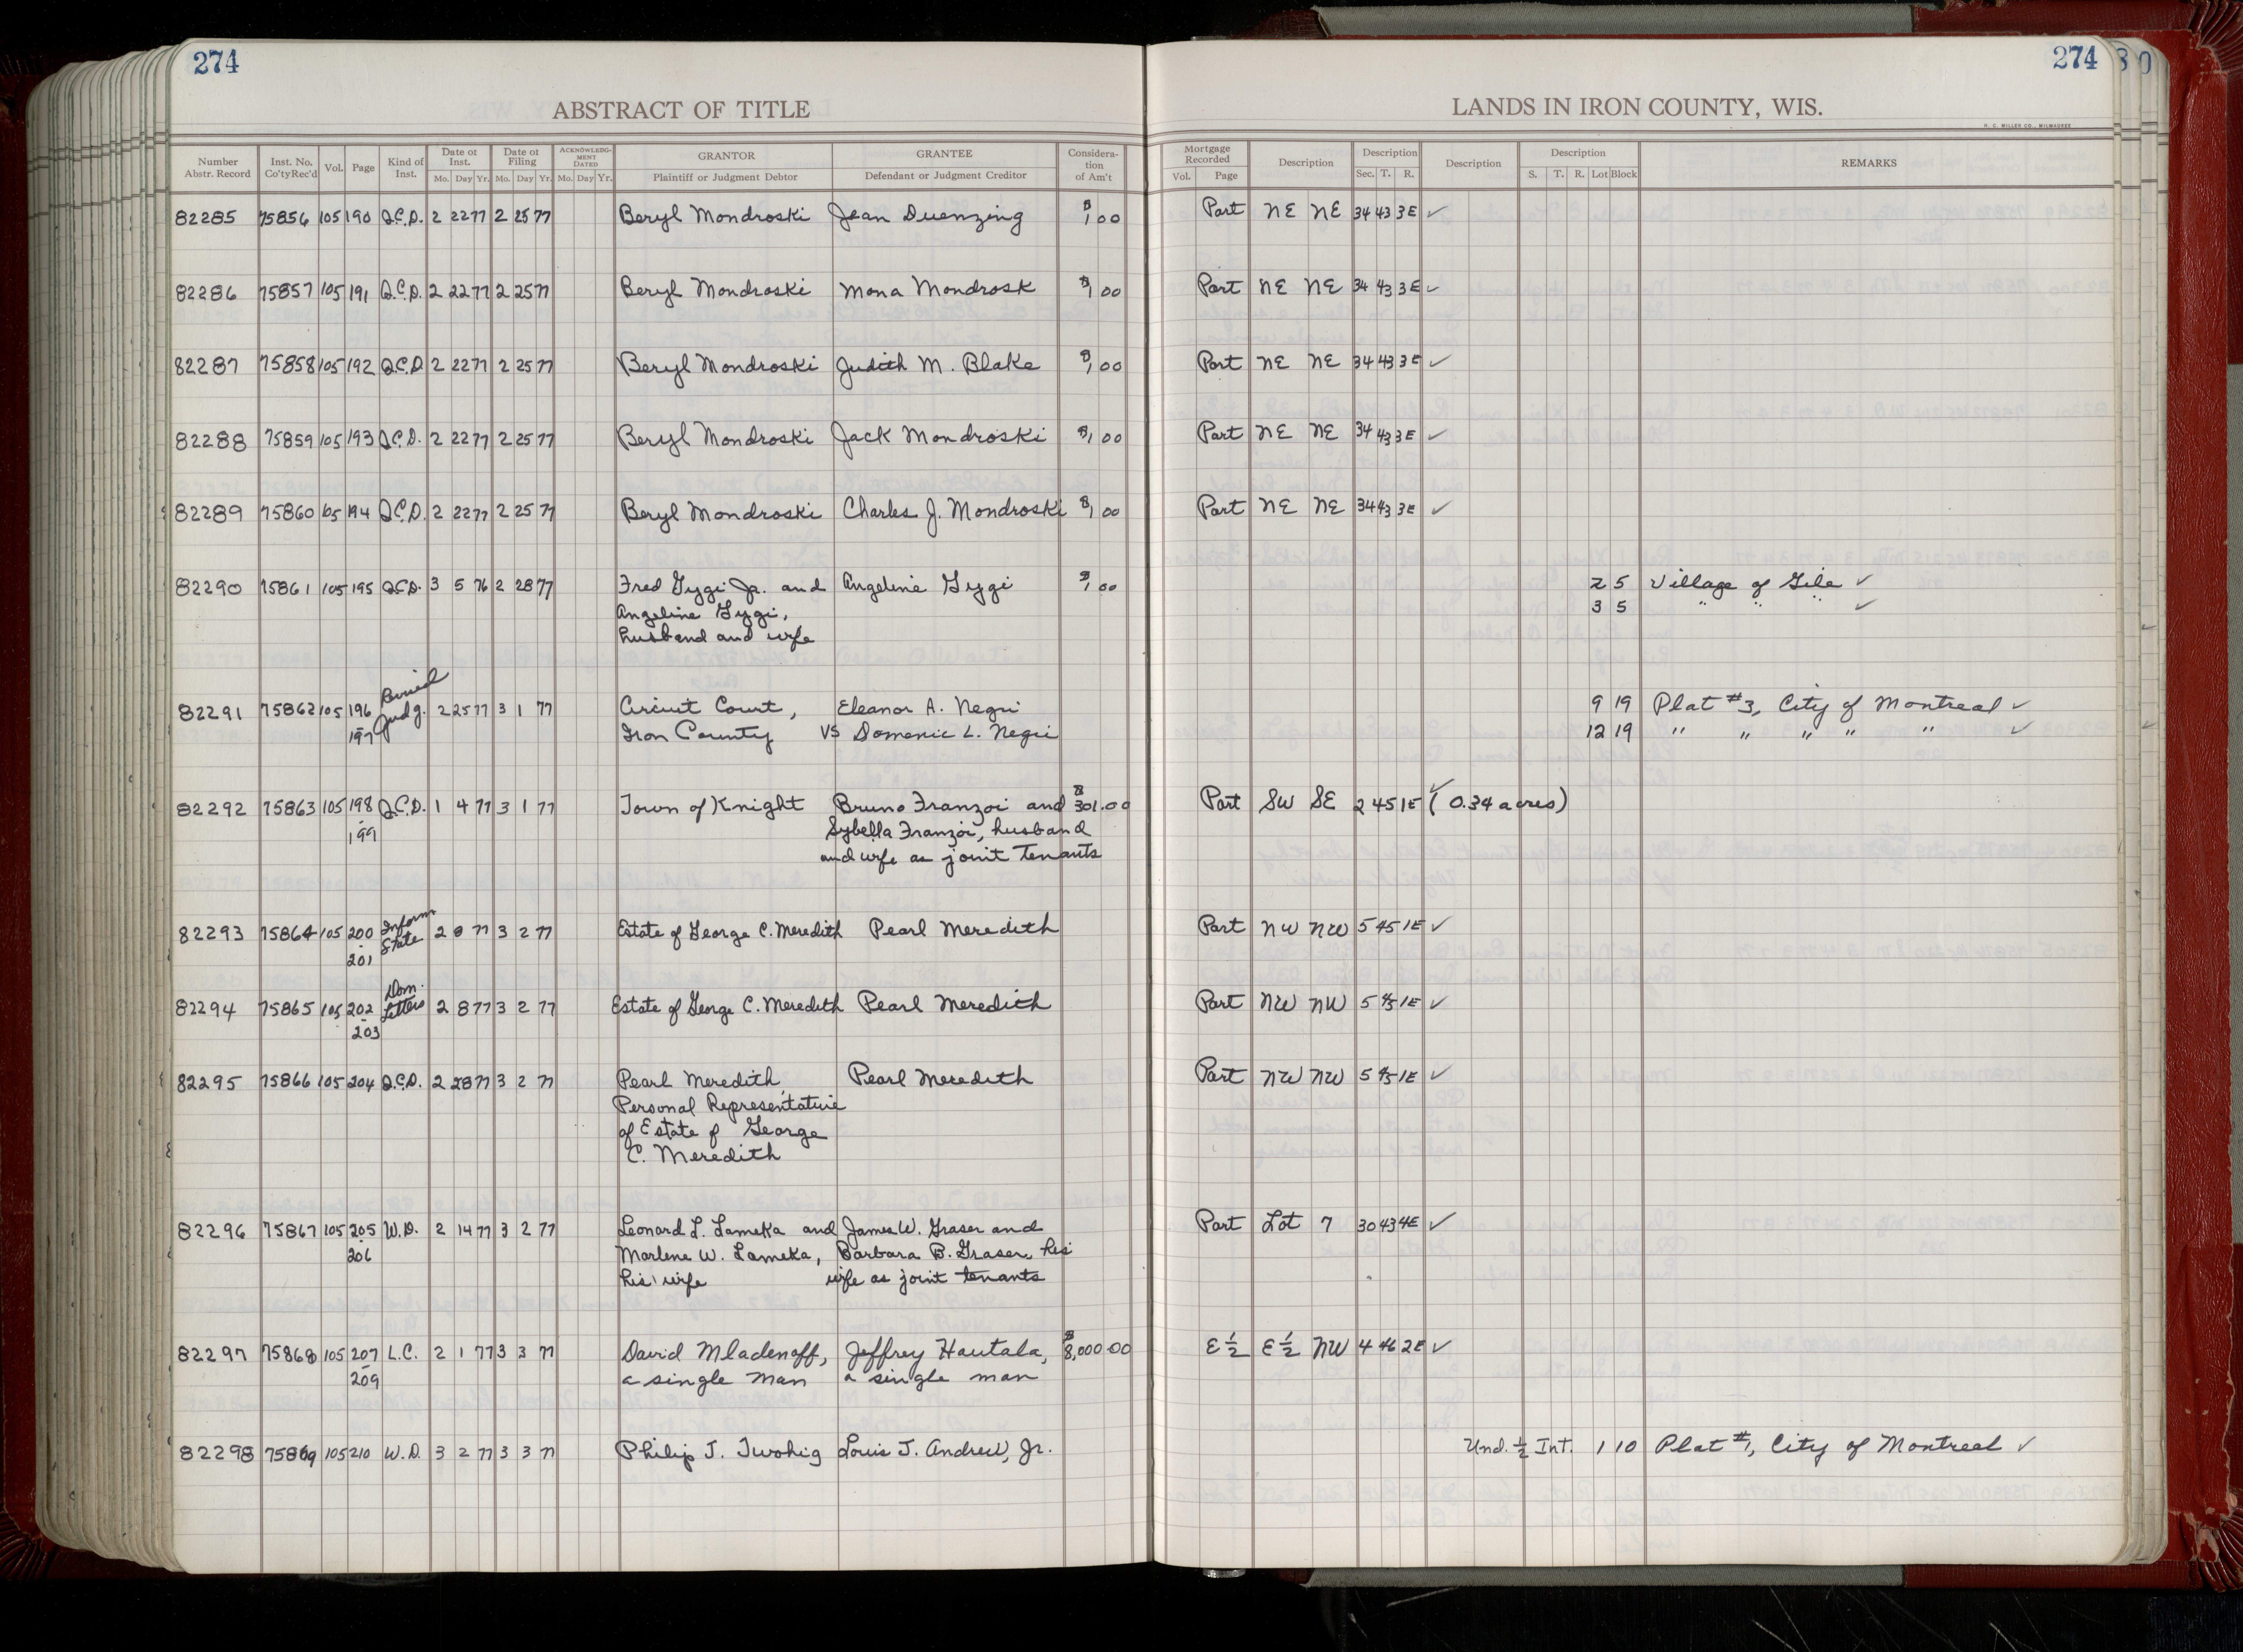 274
274
80
ABSTRACT OF TITLE
LANDS IN IRON COUNTY, WIS.
H. C. MILLER CO., MILWAUKEE
Number Abstr. Record Inst. No. Co'ty Rec'd Vol. Page Kind of Inst. Date of Inst. Mo. Day Yr. Date of Filing Mo. Day Yr. ACKNOWLEDGMENT DATED Mo. Day Yr. GRANTOR Plaintiff or Judgment Debtor GRANTEE Defendant or Judgment Creditor Consideration of Am't Mortgage Recorded Vol. Page Description Description Sec. T. R. Description Description S. T. R. Lot Block REMARKS
82285 75856 105 190 Q.C.D. 2 22 77 2 25 77 Beryl Mondroski Jean Duenzing $1 00 Part NE NE 34 43 3E ✓
82286 75857 105 191 Q.C.D. 2 22 77 2 25 77 Beryl Mondroski Mona Mondrosk $1 00 Part NE NE 34 43 3E ✓
82287 75858 105 192 Q.C.D 2 22 77 2 25 77 Beryl Mondroski Judith M. Blake $1 00 Part NE NE 34 43 3E ✓
82288 75859 105 193 Q.C.D. 2 22 77 2 25 77 Beryl Mondroski Jack Mondroski $1 00 Part NE NE 34 43 3E ✓
82289 75860 105 194 Q.C.D. 2 22 77 2 25 77 Beryl Mondroski Charles J. Mondroski $1 00 Part NE NE 34 43 3E ✓
82290 75861 105 195 Q.C.D. 3 5 76 2 28 77 Fred Gygi Jr. and Angeline Gygi $1 00 2 5 Village of Gile ✓
Angeline Gygi, 3 5 " " " ✓
husband and wife
82291 75862 105 196 Judg. 2 25 77 3 1 77 Circuit Court, Eleanor A. Negri 9 19 Plat #3, City of Montreal ✓
-197 Iron County VS Domenic L. Negri 12 19 " " " " " ✓
82292 75863 105 198 Q.C.D. 1 4 77 3 1 77 Town of Knight Bruno Franzoi and $301.00 Part SW SE 2 45 1E ✓ (0.34 acres)
-199 Sybella Franzoi, husband
and wife as joint tenants
82293 75864 105 200 Inform State 2 8 77 3 2 77 Estate of George C. Meredith Pearl Meredith Part NW NW 5 45 1E ✓
-201
82294 75865 105 202 Dom. Letters 2 8 77 3 2 77 Estate of George C. Meredith Pearl Meredith Part NW NW 5 45 1E ✓
-203
82295 75866 105 204 Q.C.D. 2 28 77 3 2 77 Pearl Meredith, Pearl Meredith Part NW NW 5 45 1E ✓
Personal Representative
of Estate of George
C. Meredith
82296 75867 105 205 W.D. 2 14 77 3 2 77 Leonard L. Lameka and James W. Graser and Part Lot 7 30 43 4E ✓
-206 Marlene W. Lameka, Barbara B. Graser, his
his wife wife as joint tenants
82297 75868 105 207 L.C. 2 1 77 3 3 77 David Mladenoff, Jeffrey Hautala, $8,000.00 E½ E½ NW 4 46 2E ✓
-209 a single man a single man
82298 75869 105 210 W.D. 3 2 77 3 3 77 Philip J. Twohig Louis J. Andrew, Jr. Und. ½ Int. 1 10 Plat #1, City of Montreal ✓